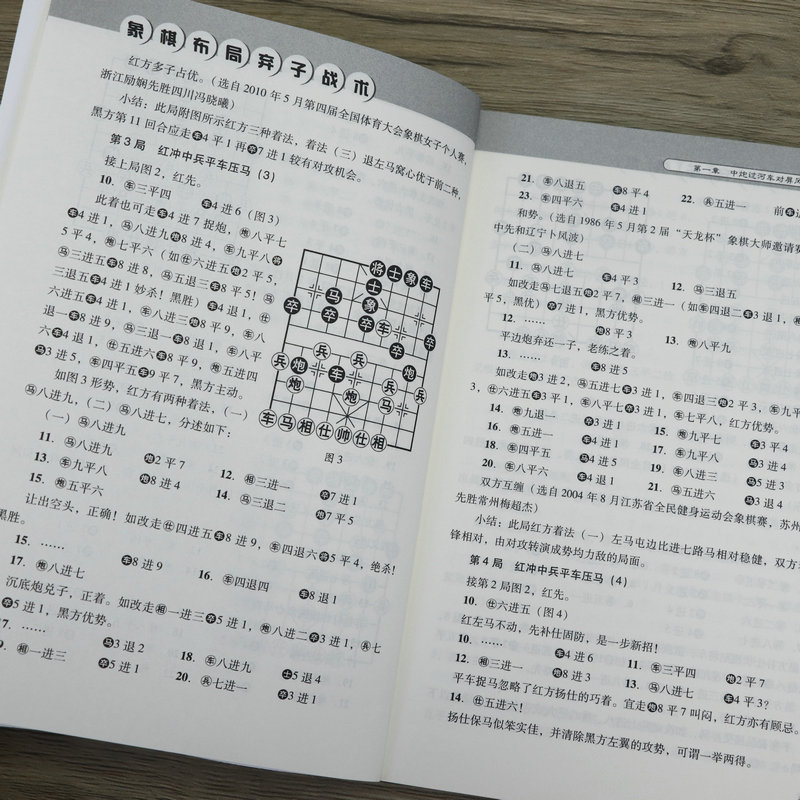 象棋布局弃子战术
红方多子占优。（选自2010年5月第四届全国体育大会象棋女子个人赛，
浙江励娴先胜四川冯晓曦）
小结：此局附图所示红方三种着法，着法（三）退左马窝心优于前二种，
黑方第11回合应走车4平1再卒7进1较有对攻机会。
第3局 红冲中兵平车压马（3）
接上局图2，红先。
10. 车三平四 车4进6（图3）
此着也可走车4进7捉炮，炮八平七
车4进1，马八进九炮8进4，车九平八将
5平4，炮七平六（如仕六进五炮2平5，
马三进五车8进8，马五退三车8平5！马
三退五车4进1妙杀！黑胜）车4退1，车
六进五车4进1，车八进三炮8平9，车八
退一车8进9，马三退一车8退1，车八平
六车4退1，仕五进六车8平9，炮五进四
马3进5，车四平五车9平7，黑方主动。
如图3形势，红方有两种着法，（一）
马八进九，（二）马八进七，分述如下：
（一）马八进九
将士象车
士
马象
卒卒卒车卒
卒
兵兵兵
炮车炮
炮炮马兵
车马相仕帅仕相
图3
11. 马八进九 炮2平7 12. 相三进一 卒7进1
13. 车九平八 炮8进4 14. 马三退二 卒7平5
15. 炮五平六
让出空头，正确！如改走仕四进五车8进9，车四退六将5平4，绝杀！
黑胜。
15. …… 车8进9 16. 车四退四 车8退1
17. 炮八进七
沉底炮兑子，正着。如改走相一进三卒5进1，炮八进二卒3进1，兵七
卒5进1，黑方优势。
7. …… 马3退2 18. 车八进九 士5退4
9. 相一进三 卒5进1 20. 兵七进一 卒3进1
第一章 中炮过河车对屏风
21. 车八退五 车8平4 22. 兵五进一 前车
23. 车四平六 车4进1
和势。（选自1986年5月第2届“天龙杯”象棋大师邀请赛
中先和辽宁卜凤波）
（二）马八进七
11. 马八进七 车4平3 12. 马三退五
如改走马七退五炮2平7，相三进一（如车四退二车3退1，
平5，黑优）卒7进1，黑方优势。
12. …… 炮8平3 13. 马八平九
平边炮弃还一子，老练之着。
13. …… 车8进5
如改走炮3进2，马五进七车3进1，车四退三炮2平3，车九平
3，仕六进五车3平1，车八平七卒3进1，车七平八，红方优势。
14. 炮九退一 卒3进1 15. 炮九平七 车3平4
16. 炮五进一 车4进1 17. 车九平八 马3进4
18. 车四平五 马4进5 19. 车八进三 马5进3
20. 车八平六 车4退1 21. 马五进六 马3退4
双方互缠（选自2004年8月江苏省全民健身运动会象棋赛，苏州
先胜常州梅超杰）
小结：此局红方着法（一）左马屯边比进七路马相对稳健，双方
锋相对，由对攻转演成势均力敌的局面。
第4局 红冲中兵平车压马（4）
接第2局图2，红先。
10. 仕六进五（图4）
红左马不动，先补仕固防，是一步新招！
10. …… 车4进6 11. 车三平四 炮2平7
12. 相三进一 炮8进4 13. 马八进七 车4平3？
平车捉马忽略了红方扬仕的巧着。宜走炮8平7叫闷，红方亦有顾忌。
14. 仕五进六！
扬仕保马似笨实佳，并清除黑方左翼的攻势，可谓一举两得。